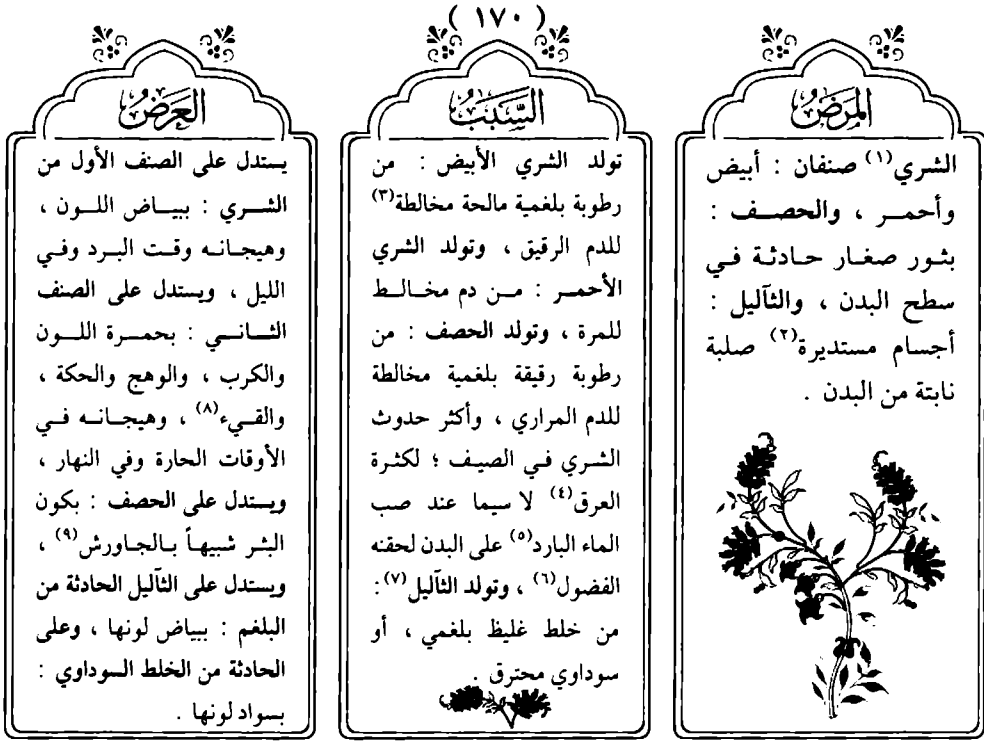 ( ١٧٠ )
المَرَضُ
الشري(١) صنفان : أبيض
وأحمـر ، والحصـف :
بثـور صغـار حـادثـة فـي
سطح البدن ، والثآليل :
أجسام مستديرة(٢) صلبة
نابتة من البدن .
السَّبَبُ
تولد الشري الأبيض : من
رطوبة بلغمية مالحة مخالطة(٣)
للدم الرقيق ، وتولد الشري
الأحمـر : مـن دم مخـالـط
للمرة ، وتولد الحصف : من
رطوبة رقيقة بلغمية مخالطة
للدم المراري ، وأكثر حدوث
الشـري فـي الصيـف ؛ لكثـرة
العرق(٤) لا سيما عند صب
الماء البارد(٥) على البدن لحقنه
الفضول(٦) ، وتولد الثآليل(٧) :
من خلط غليظ بلغمي ، أو
سوداوي محترق .
العَرَضُ
يستدل على الصنف الأول من
الشـري : ببيـاض اللـون ،
وهيجـانـه وقـت البـرد وفـي
الليل ، ويستدل على الصنف
الثـانـي : بحمـرة اللـون
والكرب ، والوهج والحكة ،
والقـيء(٨) ، وهيجـانـه فـي
الأوقات الحارة وفي النهار ،
ويستدل على الحصف : بكون
البثر شبيهاً بـالجـاورش(٩) ،
ويستدل على الثآليل الحادثة من
البلغم : ببياض لونها ، وعلى
الحادثة من الخلط السوداوي :
بسواد لونها .